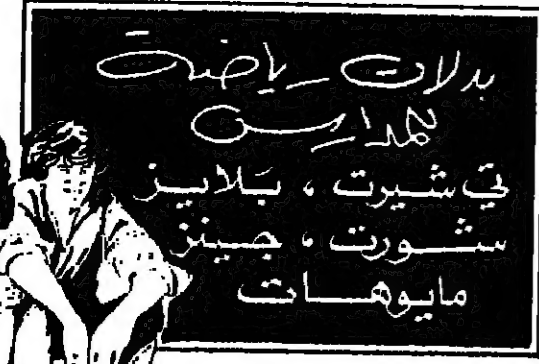 بدلات رياضة
للمدارس
تي شيرت ، بلايز
شورت ، جينز
مايوهات